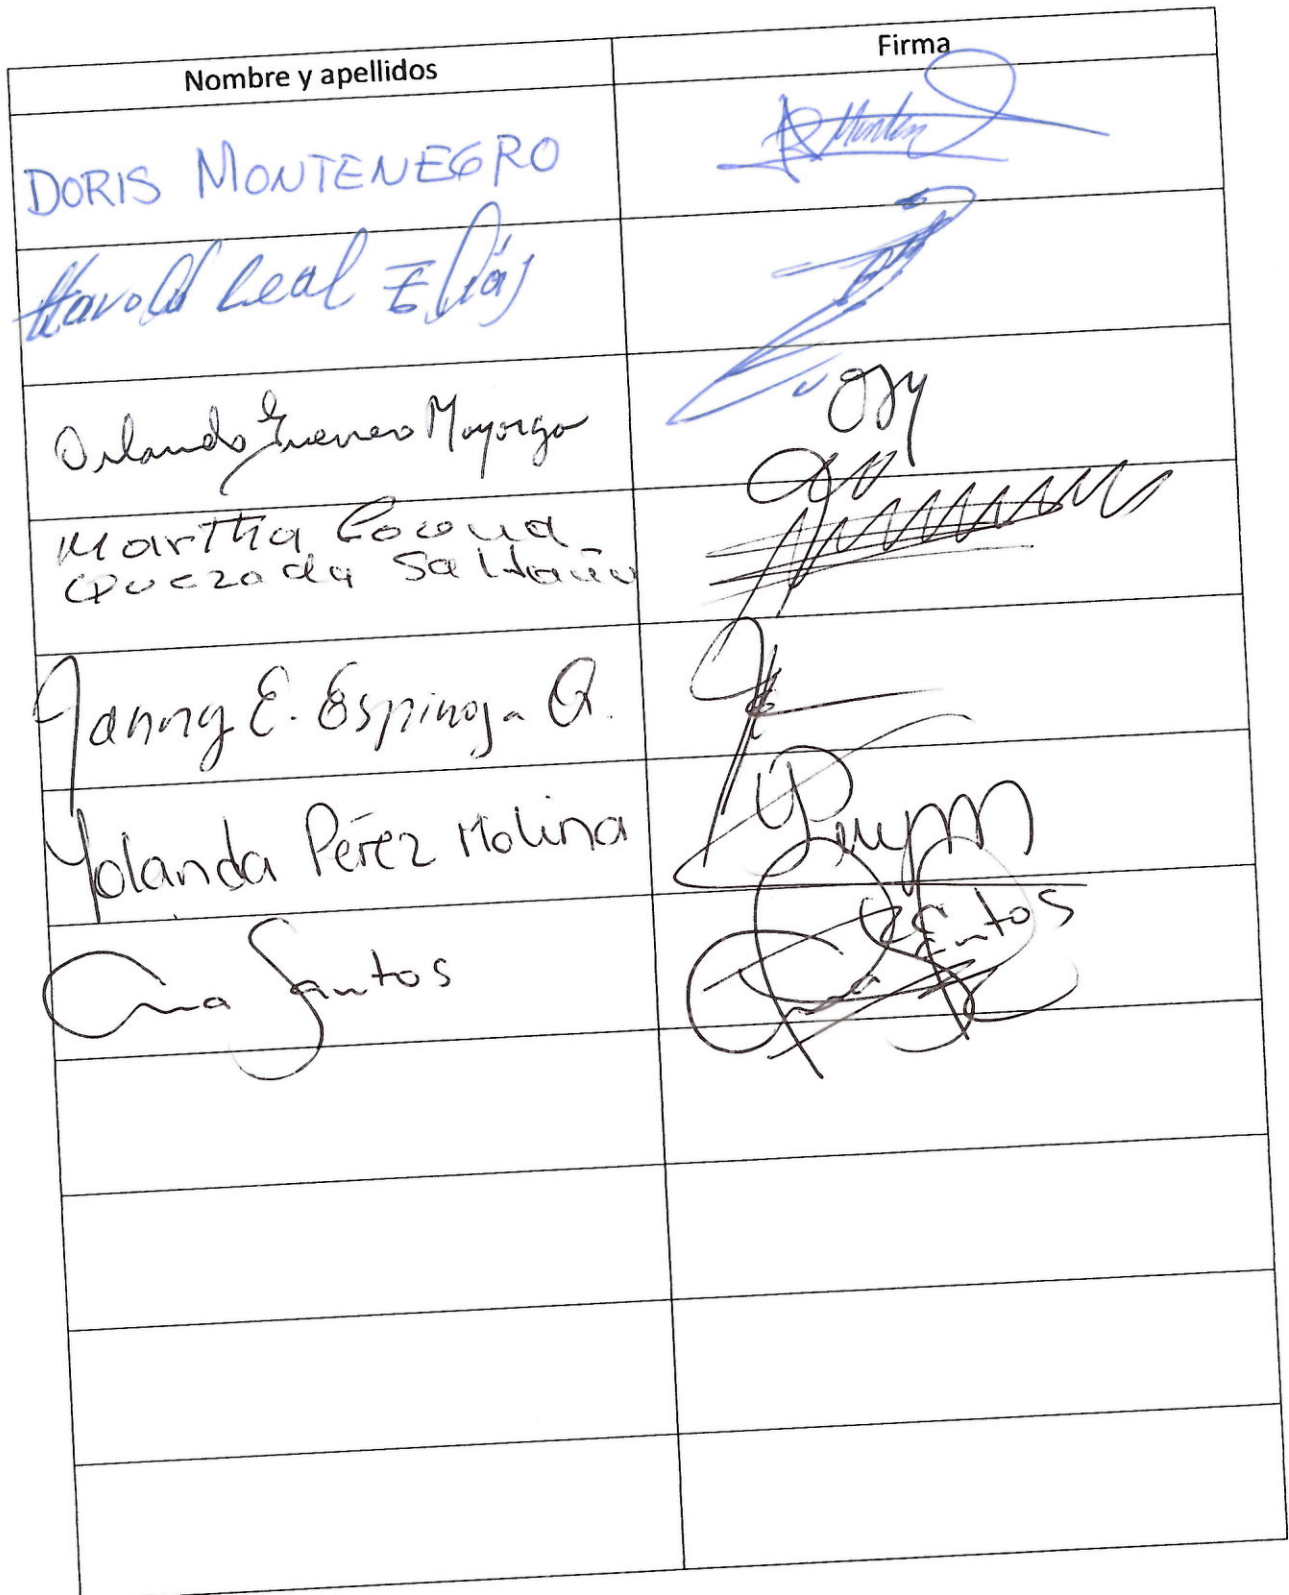 Nombre y apellidos
Firma
DORIS MONTENEGRO
Harold Leal Elías
Orlando Guerrero Mayorga
Martha Corona
Quezada
Janny E. Espinoza Q.
Yolanda Pérez Molina
Ana Santos
Ana Santos